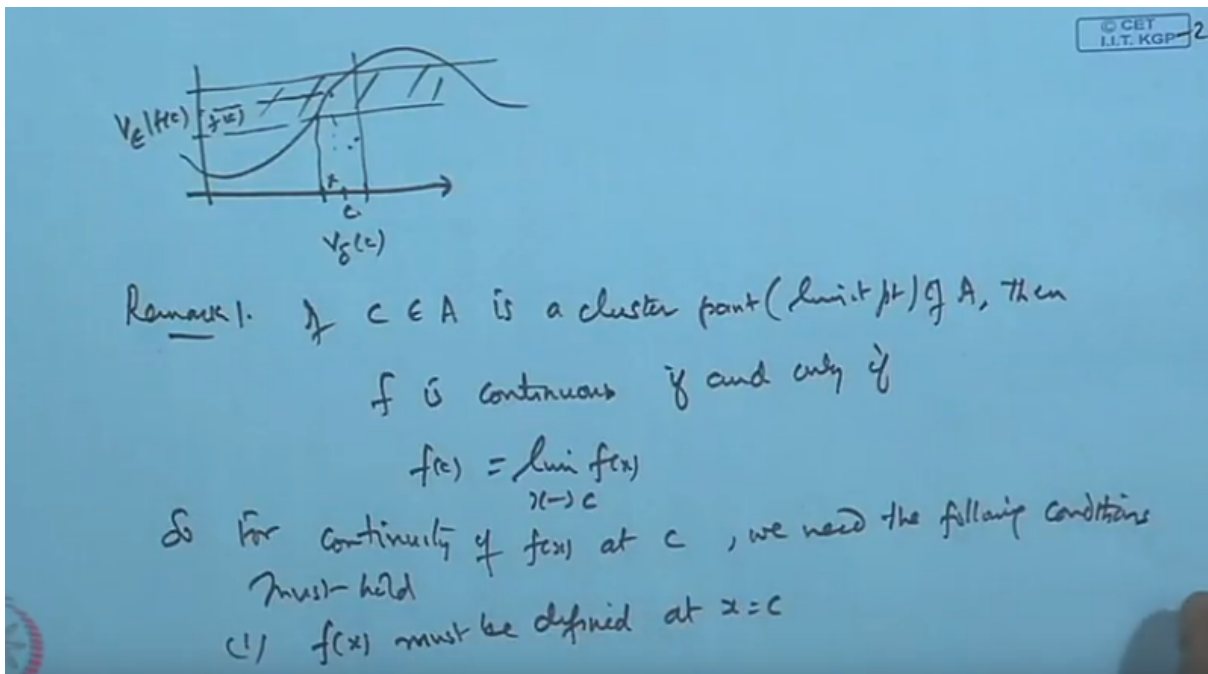 © CET
I.I.T. KGP
2
Vε(f(c)) f(c)
x
c
Vδ(c)
Remark 1. If c ∈ A is a cluster point (limit pt) of A, then
f is continuous if and only if
f(c) = lim f(x)
x→c
So For continuity of f(x) at c, we need the following conditions
must hold
(1) f(x) must be defined at x=c